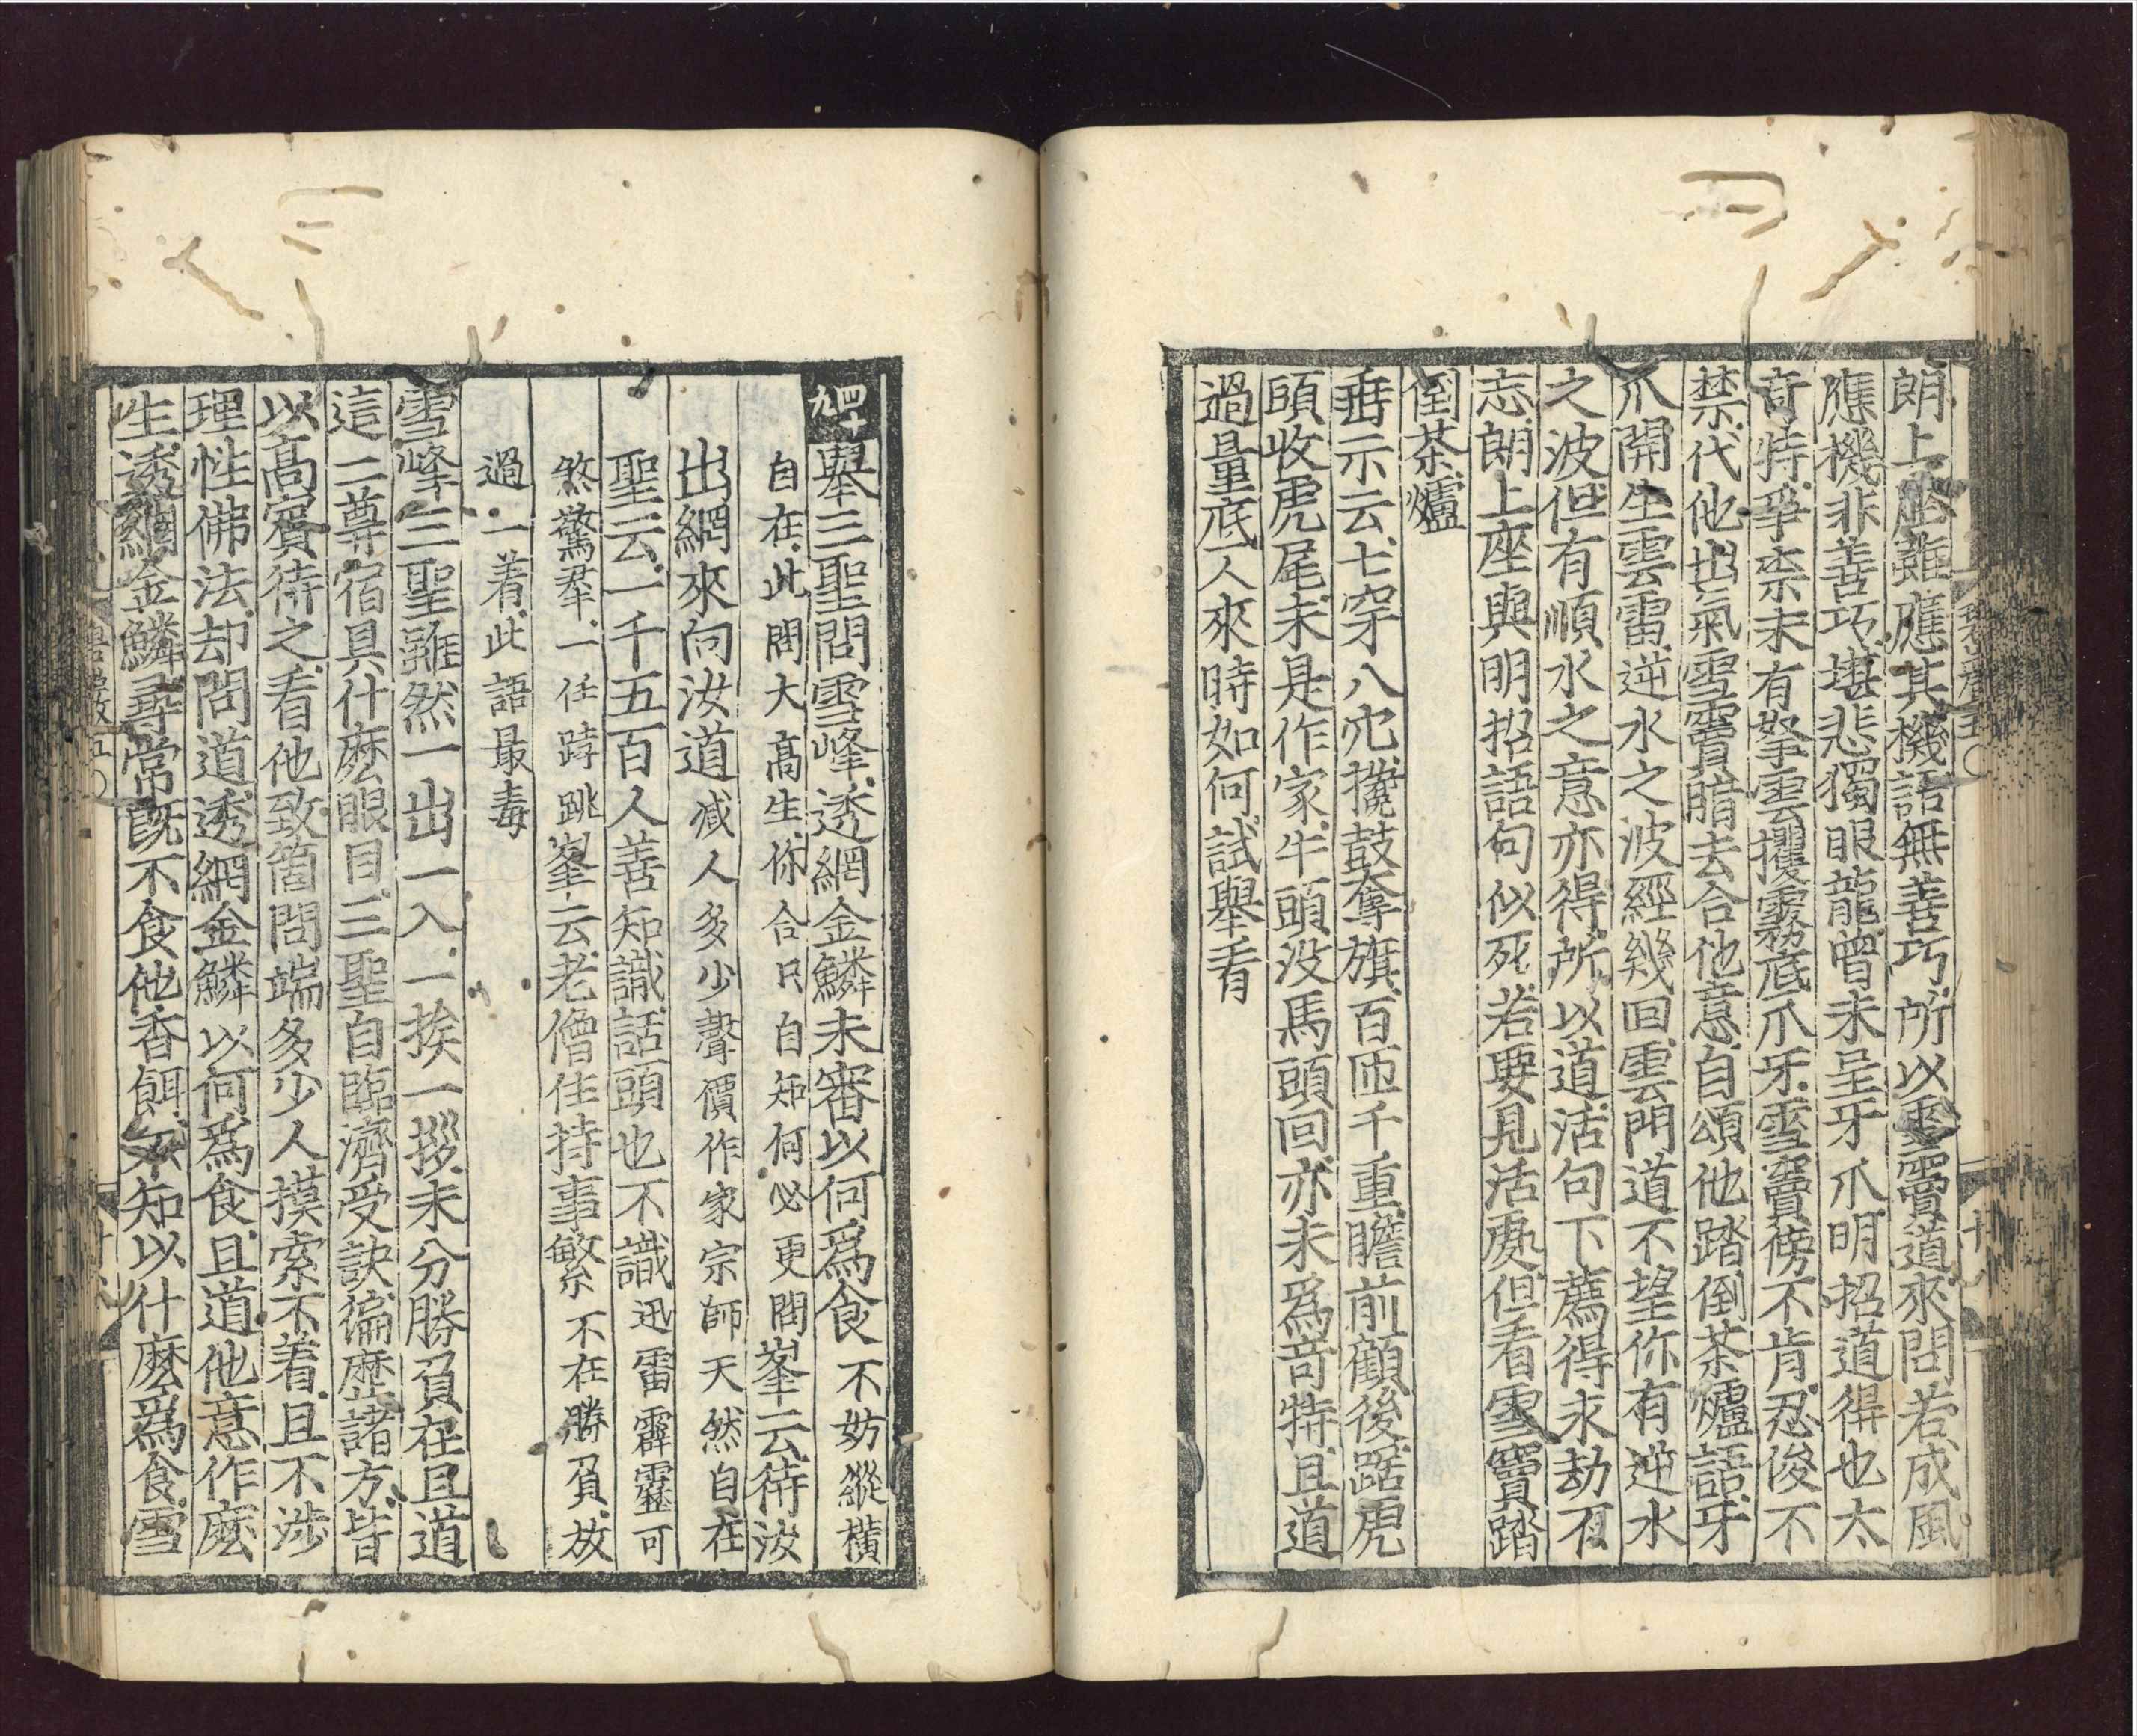 朗上座雖應其機語無善巧所以雪竇道來問若成風
應機非善巧堪悲獨眼龍曾未呈牙爪明招道得也太
奇特爭柰未有拏雲攫霧底爪牙雪竇傍不肯忍俊不
禁代他出氣雪竇暗去合他意自頌他踏倒茶爐語牙
爪開生雲雷逆水之波經幾回雲門道不望你有逆水
之波但有順水之意亦得所以道活句下薦得永劫不
忘朗上座與明招語句似死若要見活處但看雪竇踏
倒茶爐
垂示云七穿八穴攙鼓奪旗百匝千重瞻前顧後踞虎
頭收虎尾未是作家牛頭沒馬頭回亦未爲竒特且道
過量底人來時如何試舉看
四十九
舉三聖問雪峰透網金鱗未審以何爲食不妨縱橫
自在此問大高生你合只自知何必更問峯云待汝
出網來向汝道减人多少聲價作家宗師天然自在
聖云一千五百人善知識話頭也不識迅雷霹靂可
煞驚羣一任𨁝跳峯云老僧住持事繁不在勝負放
過一着此語最毒
雪峰三聖雖然一出一入一挨一拶未分勝負在且道
這二尊宿具什麽眼目三聖自臨濟受訣徧歴諸方皆
以高賓待之看他致箇問端多少人摸索不着且不涉
理性佛法却問道透網金鱗以何爲食且道他意作麽
生透網金鱗尋常旣不食他香餌不知以什麽爲食雪